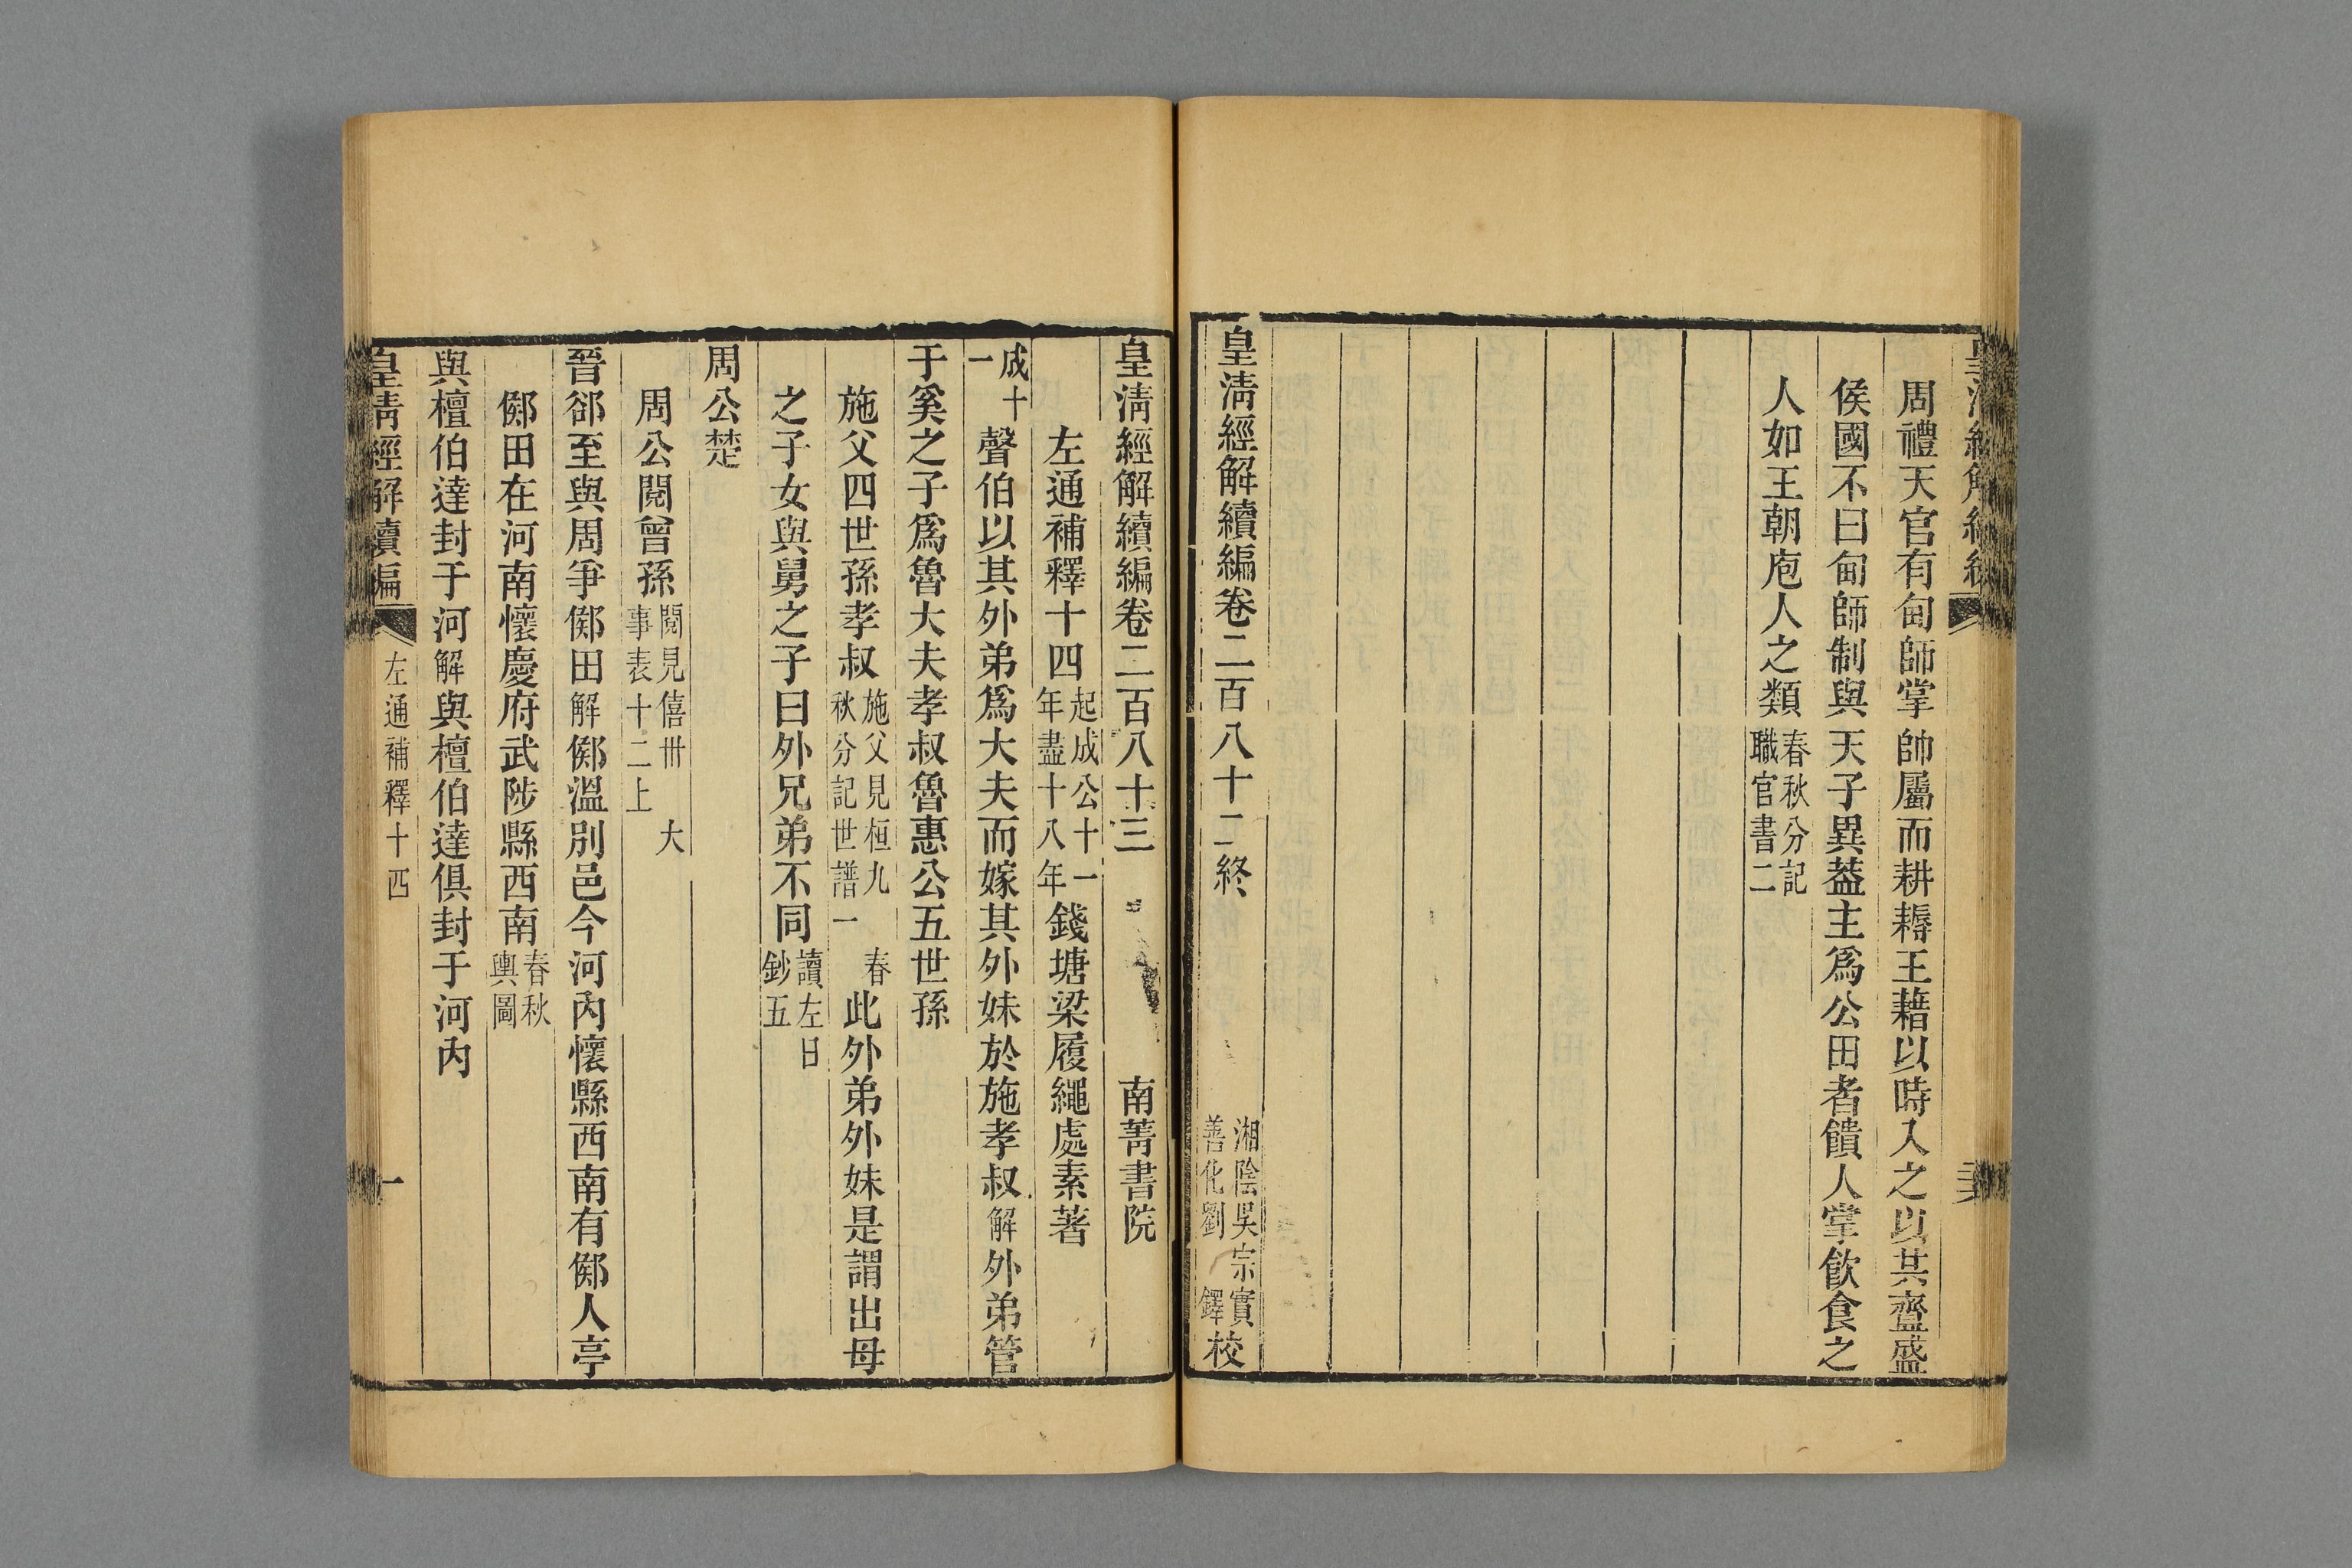 周禮天官有甸師掌帥屬而耕耨王藉以時入之以共齍盛
侯國不曰甸師制與天子異葢主爲公田者饋人掌飮食之
人如王朝庖人之類春秋分記職官書二
皇淸經解續編卷二百八十二終
湘陰吳宗實
善化劉
鐸
校
皇淸經解續編卷二百八十三
南菁書院
左通補釋十四起成公十一年盡十八年錢塘梁履繩處素著
成十一
聲伯以其外弟爲大夫而嫁其外妹於施孝叔解外弟管
于奚之子爲魯大夫孝叔魯惠公五世孫
施父四世孫孝叔施父見桓九春秋分記世譜一此外弟外妹是謂出母
之子女與舅之子曰外兄弟不同讀左日鈔五
周公楚
周公閱曾孫閱見僖卅大事表十二上
晉郤至與周爭鄇田解鄇溫別邑今河內懷縣西南有鄇人亭
鄇田在河南懷慶府武陟縣西南春秋輿圖
與檀伯達封于河解與檀伯達俱封于河內
皇淸經解續編
左通補釋十四
一